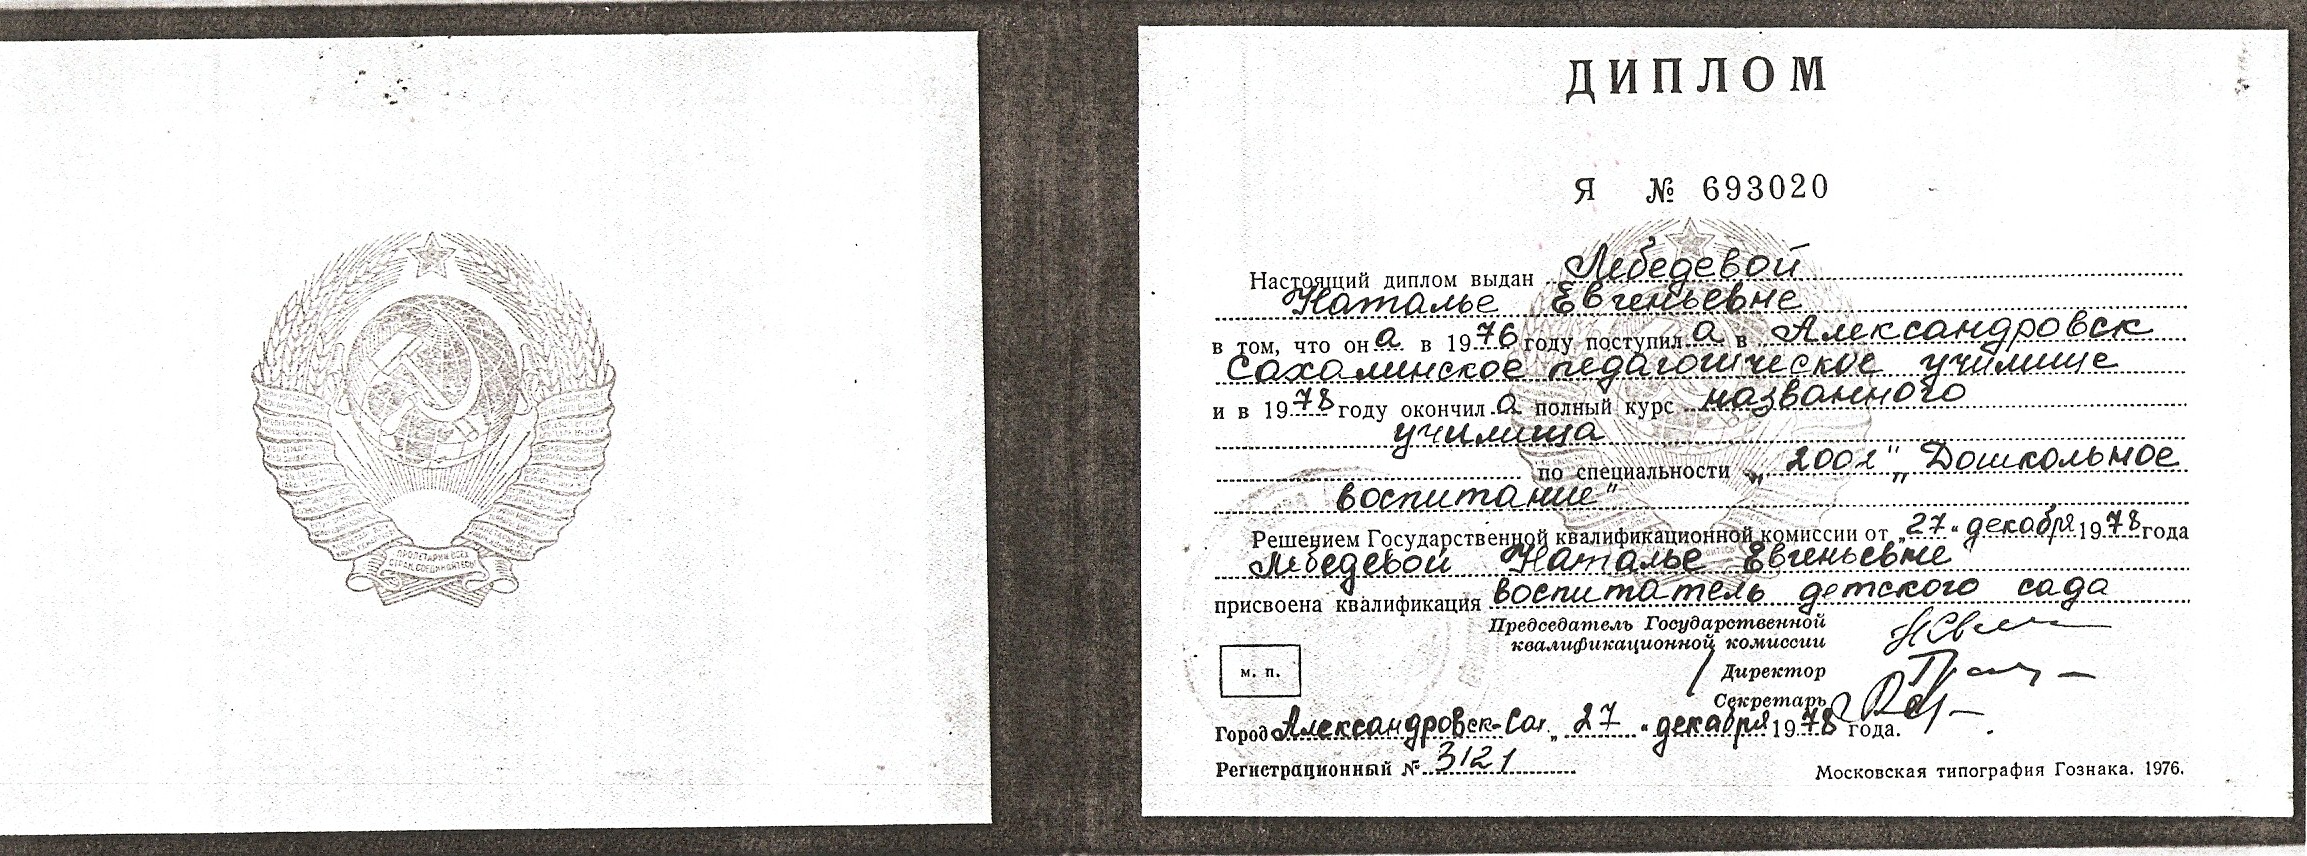 ПРОЛЕТАРИИ ВСЕХ
СТРАН, СОЕДИНЯЙТЕСЬ!
ДИПЛОМ
Я № 693020
Настоящий диплом выдан Лебедевой
Наталье Евгеньевне
в том, что она в 1976 году поступила в Александровск
Сахалинское педагогическое училище
и в 1978 году окончила полный курс названного
училища
по специальности „2002" „Дошкольное
воспитание"
Решением Государственной квалификационной комиссии от „27" декабря 1978 года
Лебедевой Наталье Евгеньевне
присвоена квалификация воспитатель детского сада
Председатель Государственной
квалификационной комиссии
Директор
Секретарь
м. п.
Город Александровск-Сах. „27" декабря 1978 года.
Регистрационный № 3121
Московская типография Гознака. 1976.